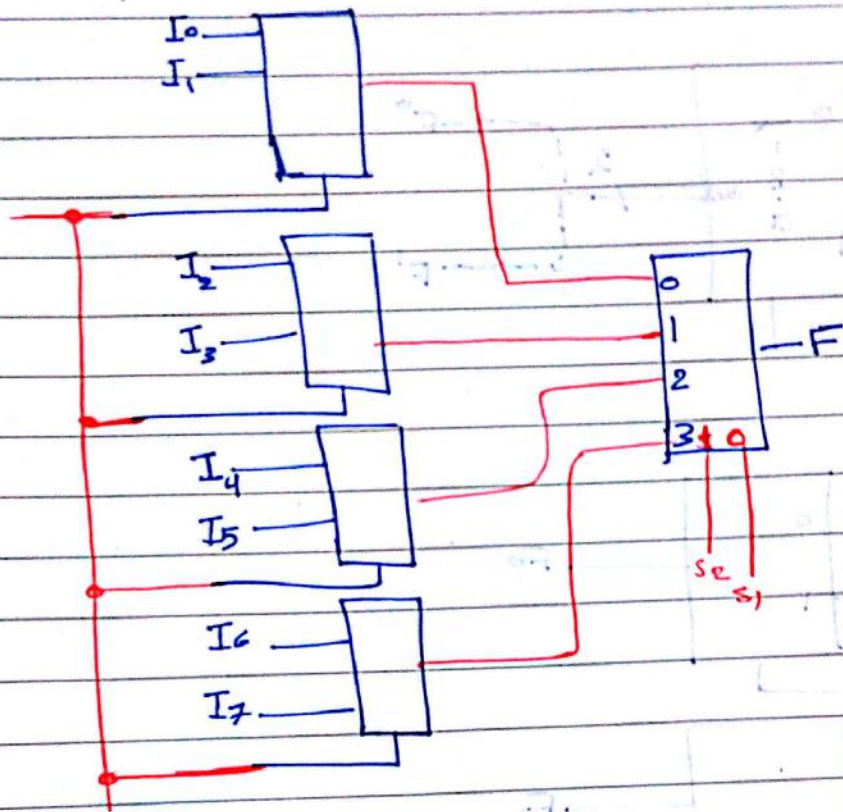 I0
I1
I2
I3
I4
I5
I6
I7
0
1
2
3 1 0
F
S2
S1